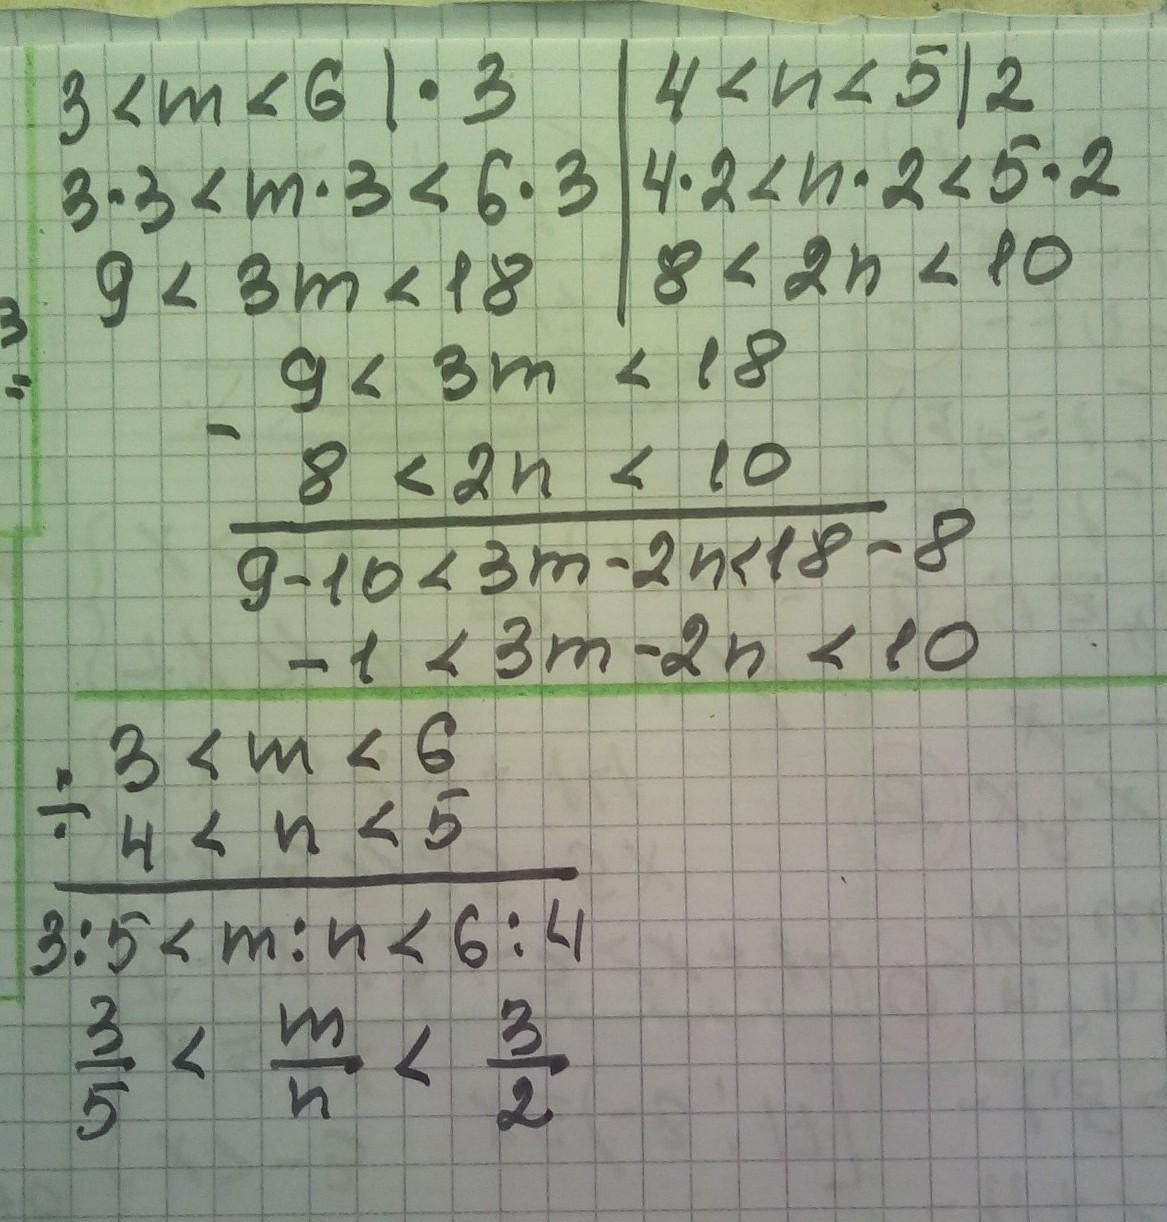 3 < m < 6 | · 3
3·3 < m·3 < 6·3
9 < 3m < 18
4 < n < 5 | 2
4·2 < n·2 < 5·2
8 < 2n < 10
9 < 3m < 18
-
8 < 2n < 10
9-10 < 3m-2n < 18-8
-1 < 3m-2n < 10
3 < m < 6
÷
4 < n < 5
3:5 < m:n < 6:4
3/5 < m/n < 3/2
3
=